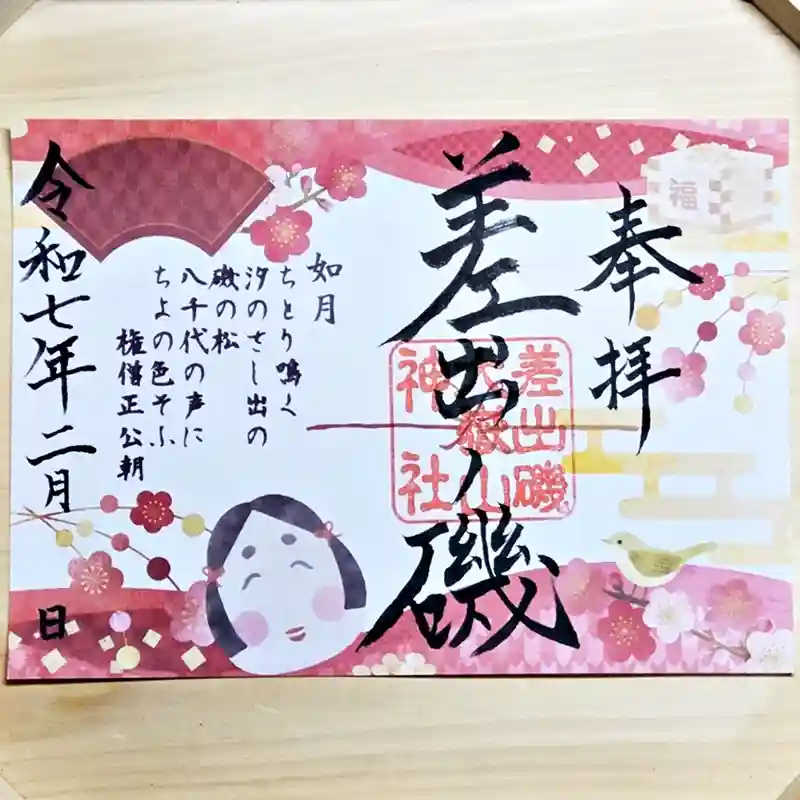 奉拝
福
差出ノ磯
差出磯
大嶽山
神社
如月
ちとり鳴く
汐のさし出の
磯の松
八千代の声に
ちよの色そふ
権僧正公朝
令和七年二月
日